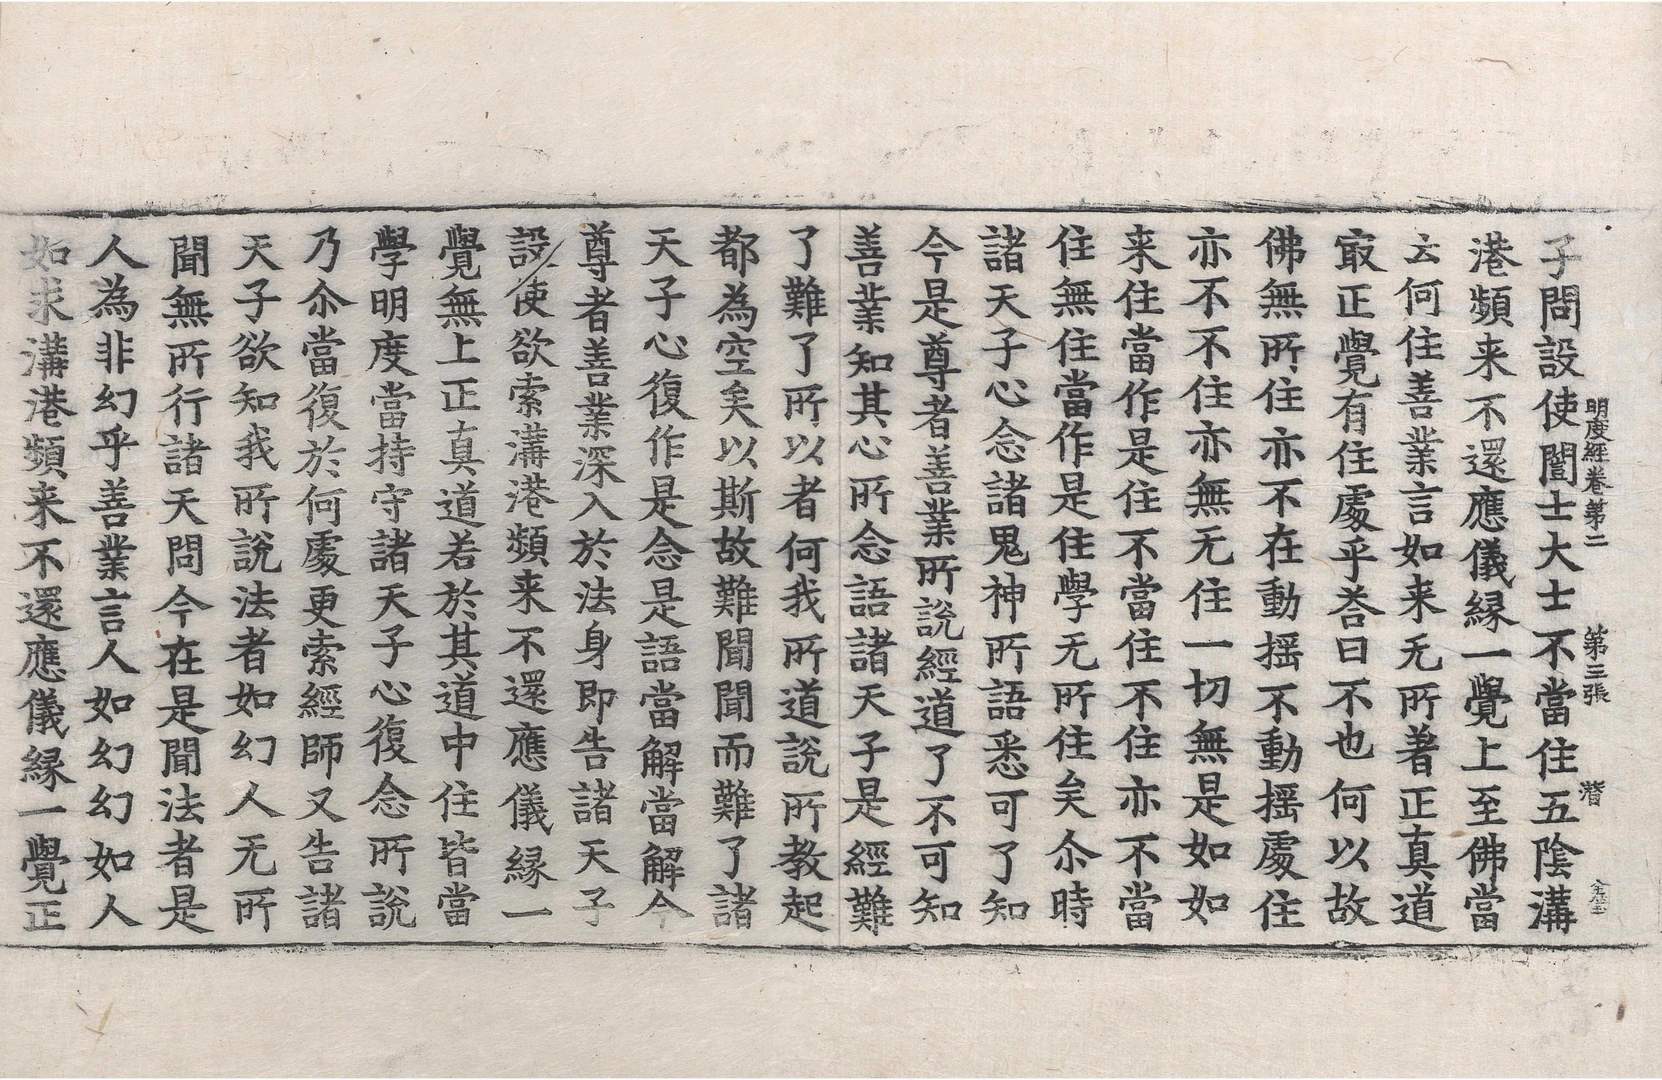 明度經卷第二 第三張 潛
子問設使闓士大士不當住五陰溝
港頻来不還應儀縁一覺上至佛當
云何住善業言如来无所著正真道
㝡正覺有住處乎荅曰不也何以故
佛無所住亦不在動揺不動揺處住
亦不不住亦無无住一切無是如如
来住當作是住不當住不住亦不當
住無住當作是住學无所住矣尒時
諸天子心念諸鬼神所語悉可了知
今是尊者善業所説經道了不可知
善業知其心所念語諸天子是經難
了難了所以者何我所道説所教起
都為空矣以斯故難聞聞而難了諸
天子心復作是念是語當解當解今
尊者善業深入於法身即告諸天子
設使欲索溝港頻来不還應儀縁一
覺無上正真道若於其道中住皆當
學明度當持守諸天子心復念所説
乃尒當復於何處更索經師又告諸
天子欲知我所說法者如幻人无所
聞無所行諸天問今在是聞法者是
人為非幻乎善業言人如幻幻如人
如求溝港頻来不還應儀縁一覺正